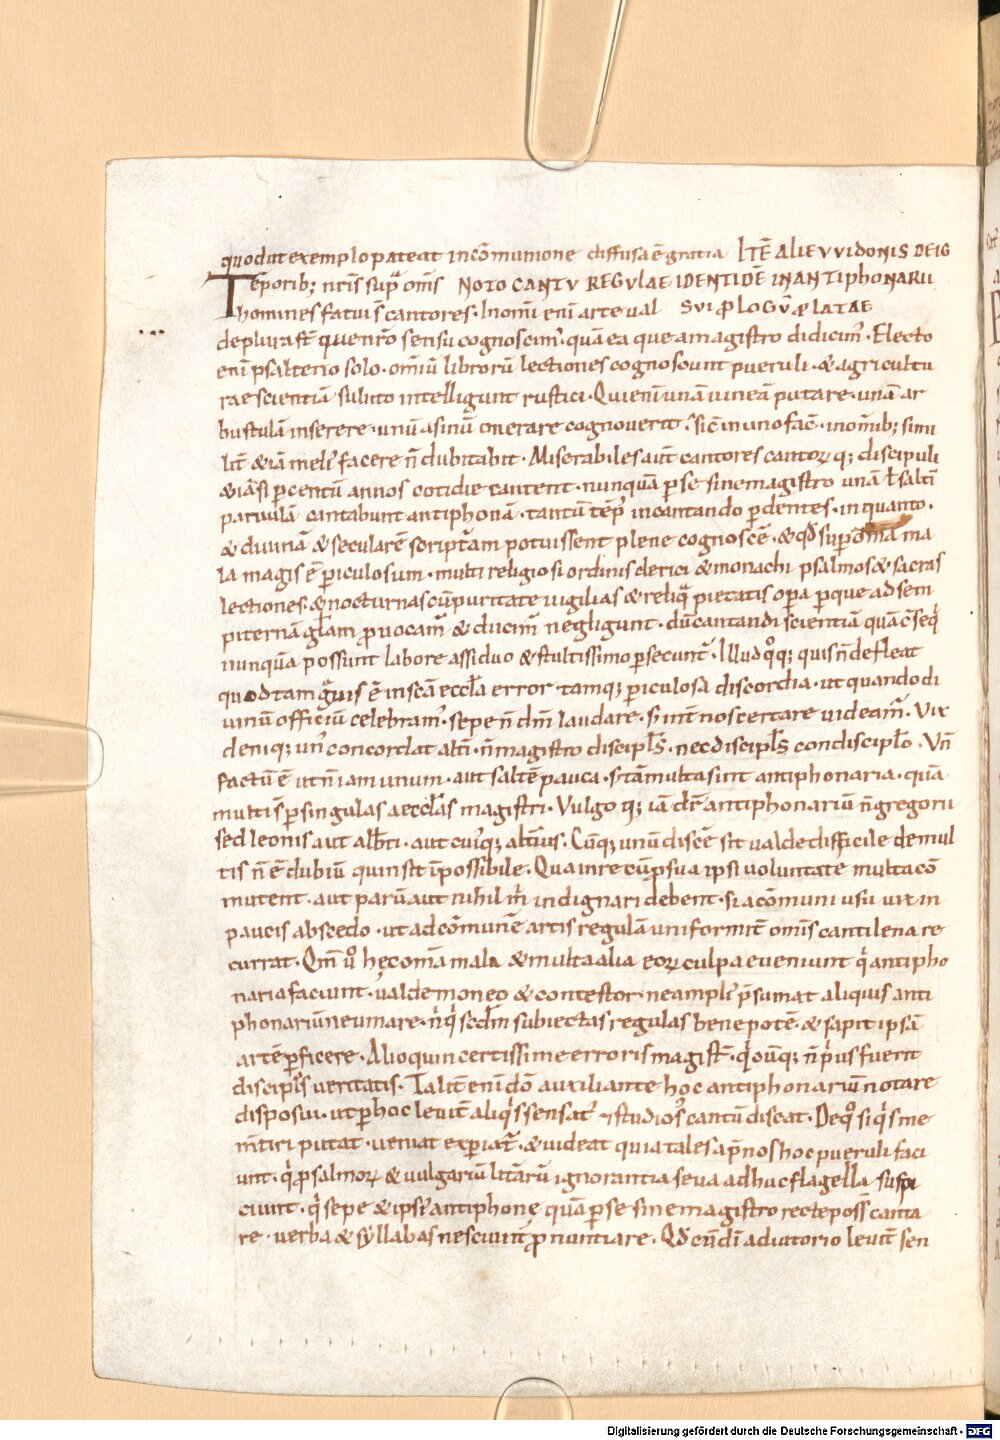 quod ut exemplo pateat in cōmunione diffusa ē gratia ITĒ ALIE VVIDONIS DE IG
Tēporib; nr̄is sup̄ om̄s NOTO CANTV REGVLAE IDENTIDĒ IN ANTIPHONARII
homines fatui s̄ cantores. In om̄i enī arte ual SVI ꝓLOGV̄ ꝓLATAE
de plura st̄ que nr̄o sensu cognoscim᷒. quā ea que a magistro didicim᷒. Electo
enī psalterio solo. om̄iū librorū lectiones cognoscunt pueruli. & agricultu
rae scientiā subito intelligunt rustici. Qui enī unā uineā putare. unā ar
bustulā inserere. unū asinū onerare cognouerit. sic̄ in uno fac̄. in om̄ib; simi
lit̄ & iā meli᷒ facere n̄ dubitabit. Miserabiles aut̄ cantores cantoꝝ q; discipuli
& iā si ꝑ centū annos cotidie cantent. nunquā ꝑ se sine magistro unā ł saltī
paruulā cantabunt antiphonā. tantū tēp᷒ in cantando ꝑdentes. in quanto.
& diuinā & secularē scripturam potuissent plene cognoscē. & qđ sup om̄ia ma
la magis ē ꝑiculosum. multi religiosi ordinis clerici & monachi psalmos & sacras
lectiones. & nocturnas cū puritate uigilias & reliq̄ pietatis opa ꝑ que ad sem
piternā gl̄am ꝓuocam̄ & ducim̄ negligunt. dū cantandi scientiā quā c̄seq̇
nunquā possunt labore assiduo & stultissimo ꝑsecunt᷒. Illud qͦq; quis n̄ defleat
quod tam gͣuis ē in sc̄a eccl̄a error tamq; ꝑiculosa discordia. ut quando di
uinū officiū celebram᷒. sepe n̄ dm̄ laudare. s; int̄ nos certare uideam̄. Vix
deniq; un᷒ concordat altī. n̄ magistro discipl̄s. nec discipl̄s condiscipl̄o. Vn̄
factū ē ut n̄ iam unum. aut saltē pauca. s; tā multa sint antiphonaria. quā
multi s̄ ꝑ singulas aeccl̄as magistri. Vulgo q; iā dr̄ antiphonariū n̄ gregorii
sed leonis aut alb̄ti. aut cui᷒q; alti᷒s. Cūq; unū discē sit ualde difficile de mul
tis n̄ ē dubiū quin sit īpossibile. Qua in re cū ꝓ sua ipsi uoluntate multa cō
mutent. aut parū aut nihil m̊ indignari debent. si a cōmuni usu uix in
paucis abscedo. ut ad cōmunē artis regulā uniformit̄ om̄is cantilena re
currat. Qm̄ uͦ hec om̄ia mala & multa alia eoꝝ culpa eueniunt q̇ antipho
naria faciunt. ualde moneo & contestor. ne ampli᷒ p̄sumat aliquis anti
phonariū neumare. n̄ q̇ scd̄m subiectas regulas bene potē. & sapit ipsā
artē ꝑficere. Alioquin certissime erroris magist̄. q̇cūq; n̄ ṗus fuerit
discipl̄s ueritatis. Talit̄ enī dō auxiliante hoc antiphonariū notare
disposui. ut ꝑ hoc leuit̄ aliq̇s sensat᷒ & studios᷒ cantū discat. De qͦ siq̇s me
m̄tiri putat. ueniat expiat᷒. & uideat quia tales ap̄ nos hoc pueruli faci
unt. q̇ ꝓ psalmoꝝ & uulgariū litt̄arū ignorantia seua adhuc flagella suspi
ciunt. q̇ sepe & ipsi᷒ antiphone quā ꝑ se sine magistro recte poss̄ canta
re. uerba & syllabas nesciunt ꝓnuntiare. Qđ cū dī adiutorio leuit̄ sen
Digitalisierung gefördert durch die Deutsche Forschungsgemeinschaft - DFG